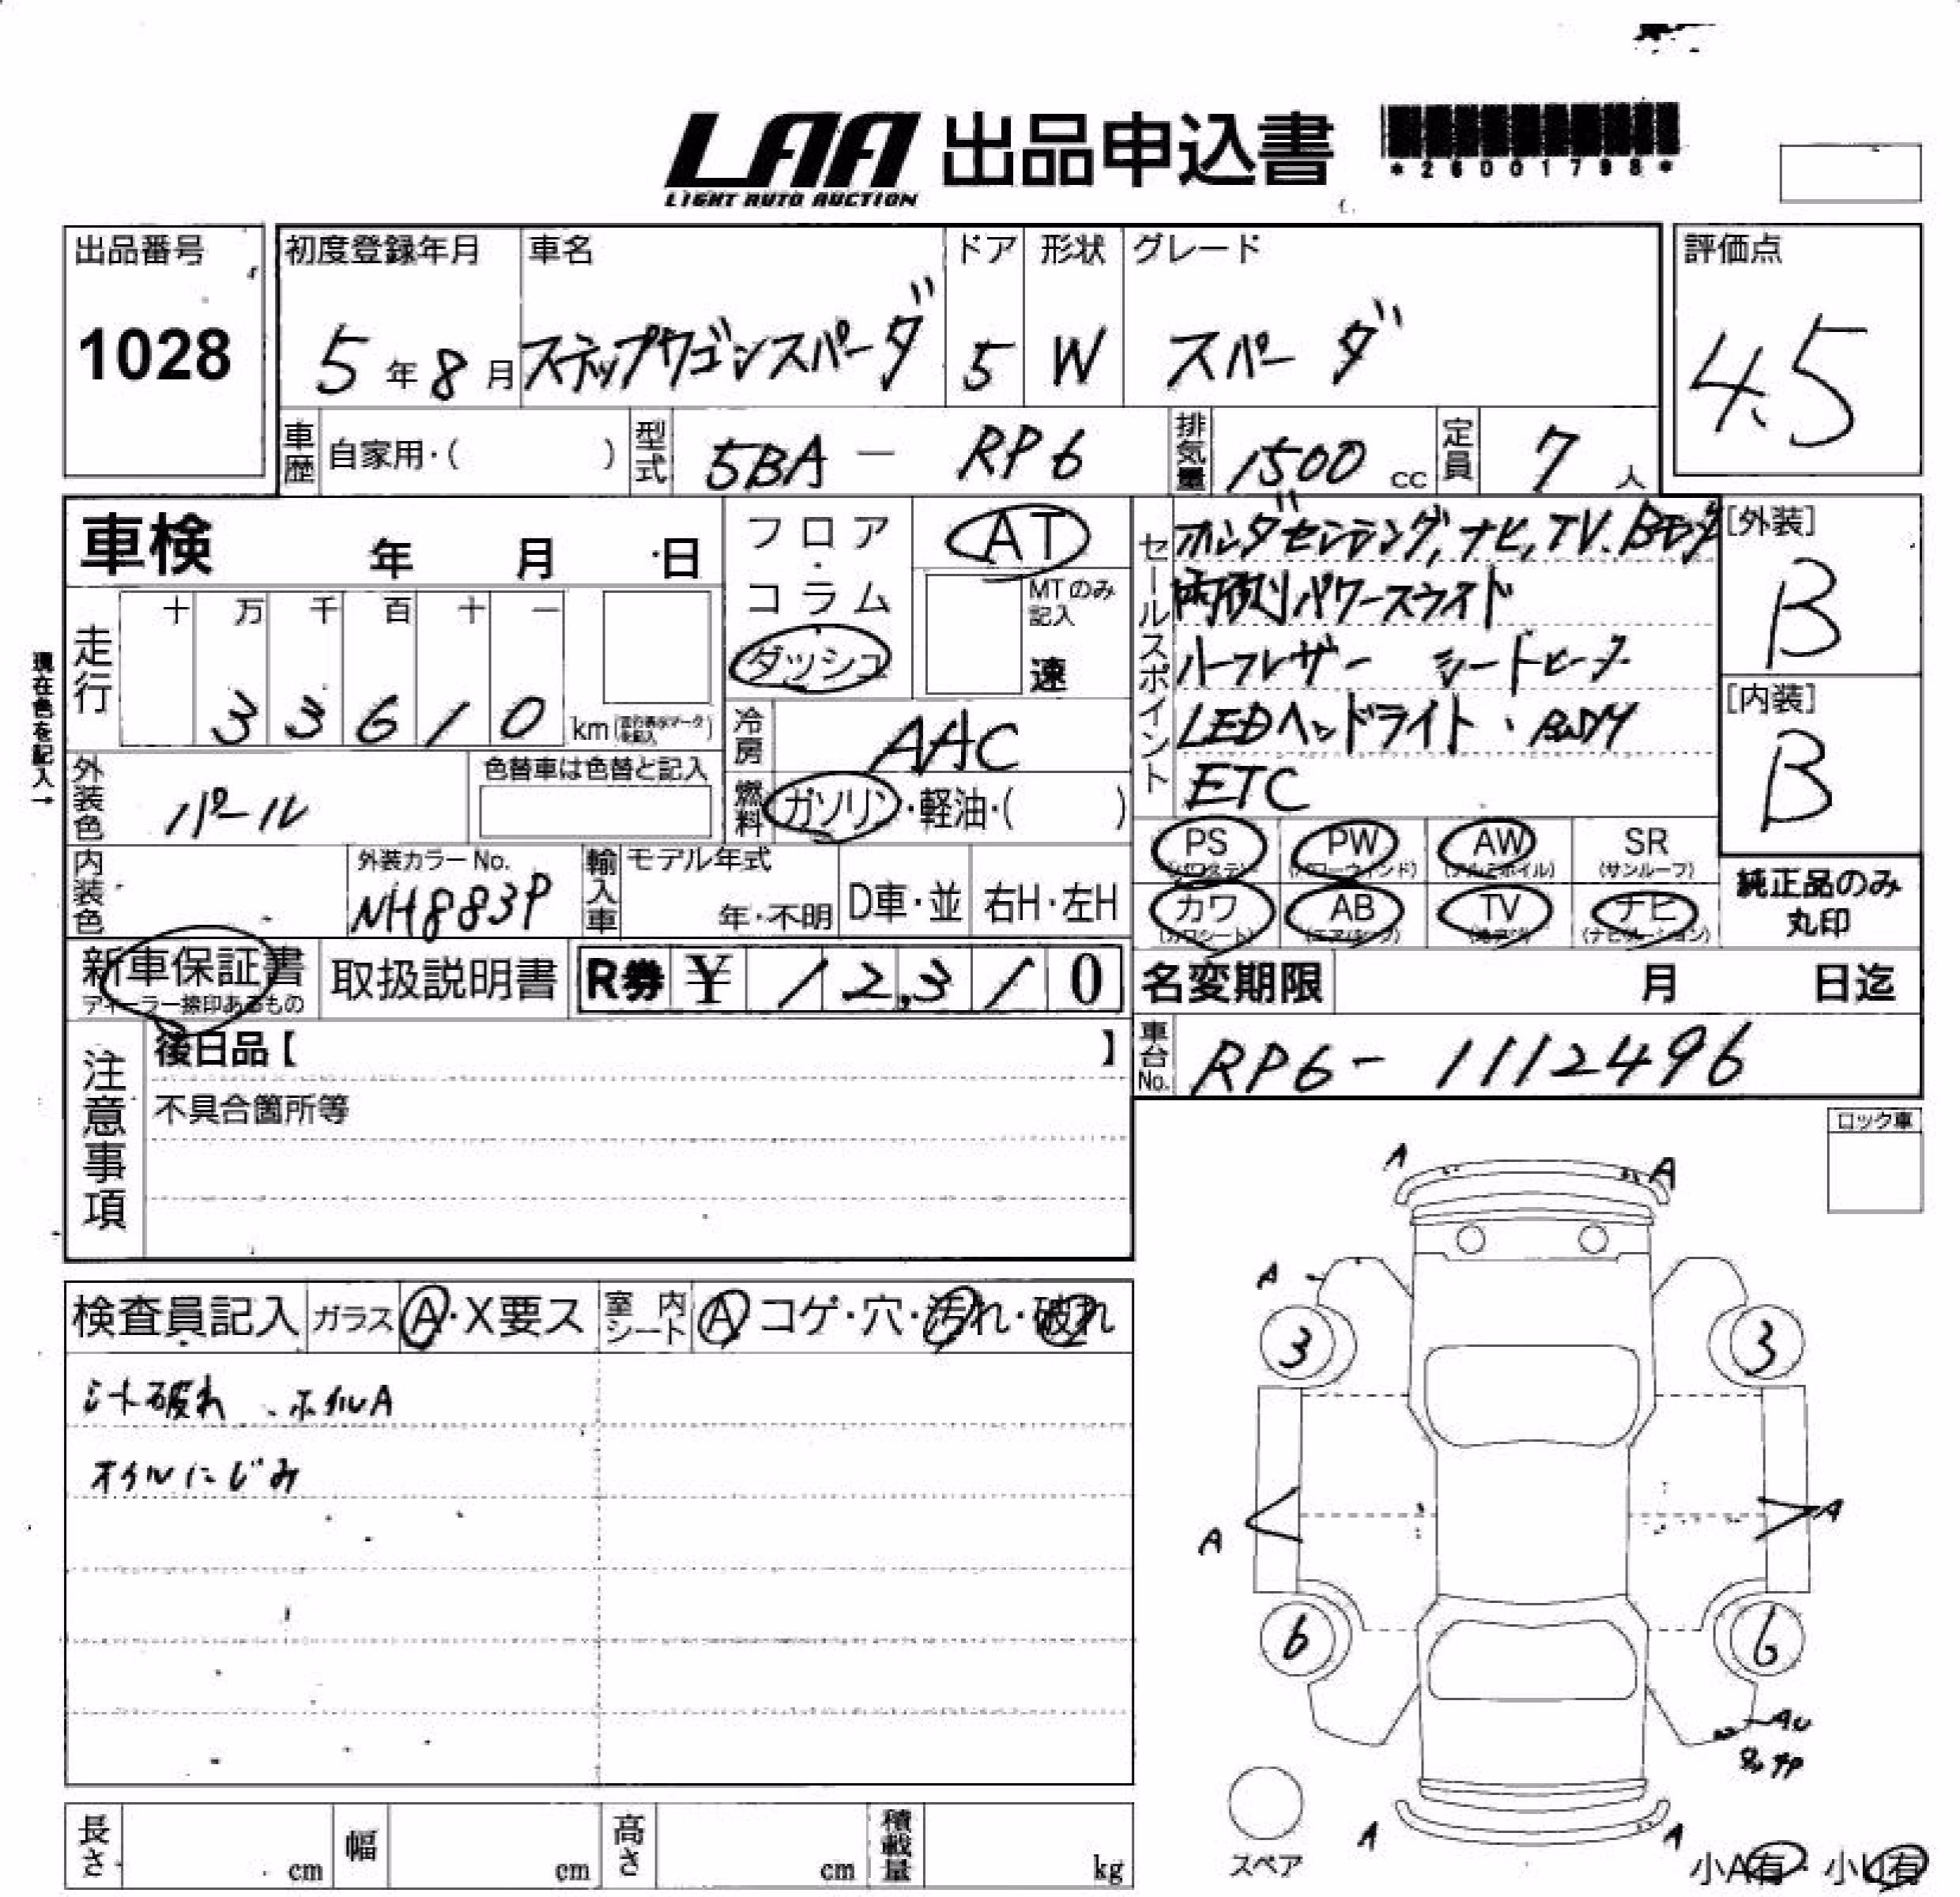 LAA 出品申込書
LIGHT AUTO AUCTION
*26001798*
出品番号
1028
初度登録年月
5年8月
車名
ステップワゴンスパーダ
ドア
5
形状
W
グレード
スパーダ
評価点
4.5
車歴
自家用・( )
型式
5BA - RP6
排気量
1500cc
定員
7人
車検 年 月 日
走行
十 万 千 百 十 一
3 3 6 1 0 km
現在色を記入→
外装色
パール
色替車は色替と記入
内装色
外装カラーNo.
NH883P
フロア・コラム
ダッシュ
AT
MTのみ記入
速
冷房
AAC
燃料
ガソリン・軽油・( )
輸入車
モデル年式
年・不明
D車・並
右H・左H
セールスポイント
ホンダセンシング、ナビ、TV、Bモニタ
両側パワースライド
ハーフレザー シートヒータ
LEDヘッドライト、BSM
ETC
[外装]
B
[内装]
B
PS (パワステ)
PW (パワーウィンド)
AW (アルミホイル)
SR (サンルーフ)
カワ (カワシート)
AB (エアバック)
TV
ナビ (ナビゲーション)
純正品のみ丸印
新車保証書
ディーラー捺印あるもの
取扱説明書
R券 ¥ 12,310
名変期限 月 日迄
車台No.
RP6-1112496
注意事項
後日品【 】
不具合箇所等
ロック車
検査員記入
ガラス
A・X要ス
室内シート
A コゲ・穴・汚れ・破れ
シート破れ、ホイルA
オイルにじみ
A A
A
3 3
A A
6 6
AU
A A
スペア
小A有・小U有
長さ cm
幅 cm
高さ cm
積載量 kg